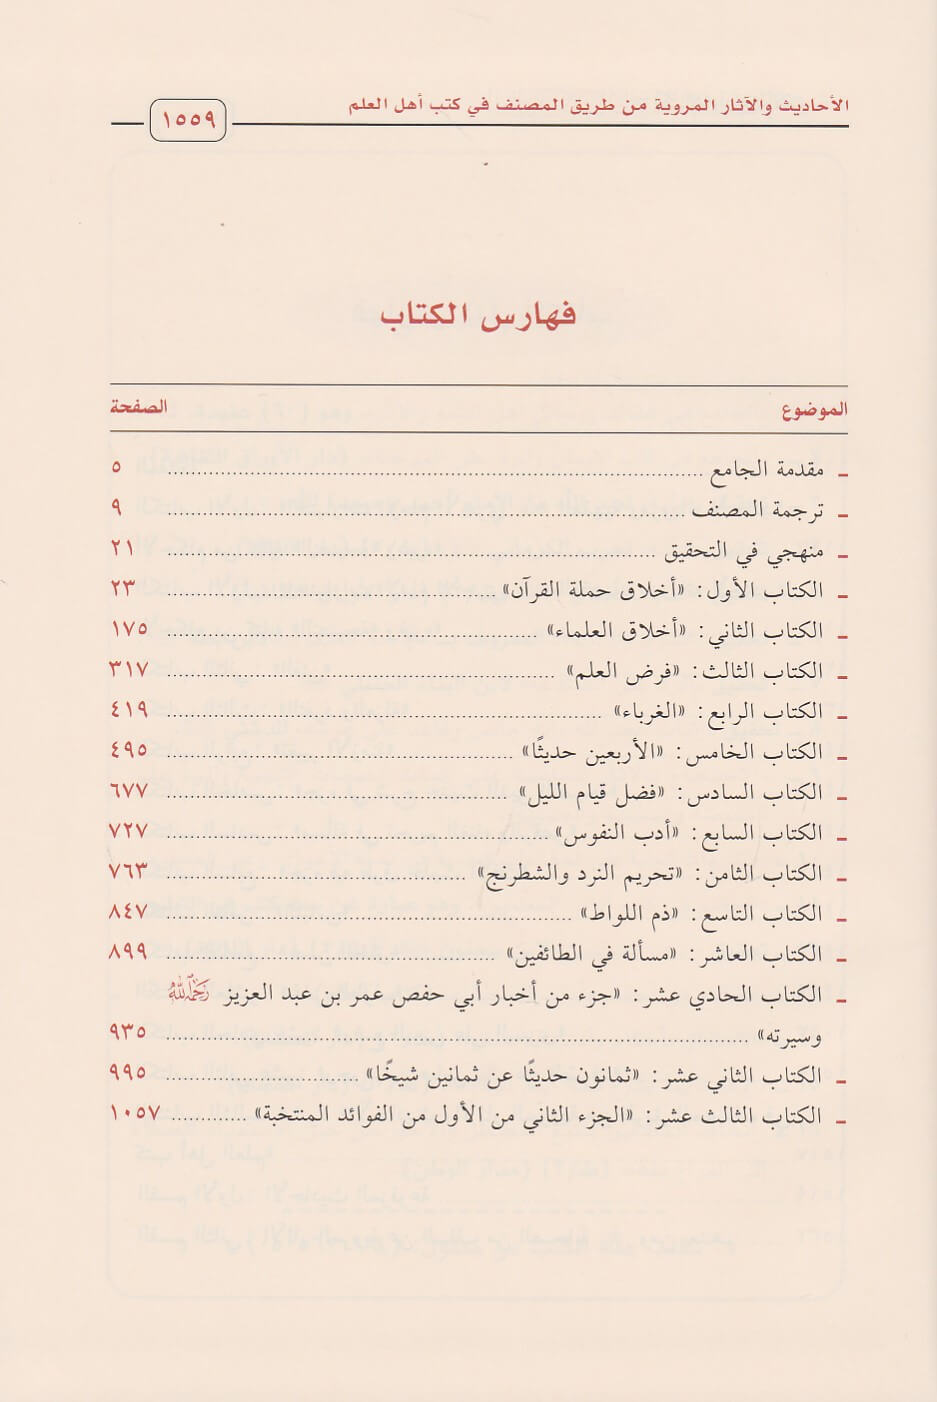 الأحاديث والآثار المروية من طريق المصنف في كتب أهل العلم ١٥٥٩
فهارس الكتاب
الموضوع الصفحة
ـ مقدمة الجامع ........ ٥
ـ ترجمة المصنف ........ ٩
ـ منهجي في التحقيق ........ ٢١
ـ الكتاب الأول: «أخلاق حملة القرآن» ........ ٢٣
ـ الكتاب الثاني: «أخلاق العلماء» ........ ١٧٥
ـ الكتاب الثالث: «فرض العلم» ........ ٣١٧
ـ الكتاب الرابع: «الغرباء» ........ ٤١٩
ـ الكتاب الخامس: «الأربعين حديثًا» ........ ٤٩٥
ـ الكتاب السادس: «فضل قيام الليل» ........ ٦٧٧
ـ الكتاب السابع: «أدب النفوس» ........ ٧٢٧
ـ الكتاب الثامن: «تحريم النرد والشطرنج» ........ ٧٦٣
ـ الكتاب التاسع: «ذم اللواط» ........ ٨٤٧
ـ الكتاب العاشر: «مسألة في الطائفين» ........ ٨٩٩
ـ الكتاب الحادي عشر: «جزء من أخبار أبي حفص عمر بن عبد العزيز رحمه الله
وسيرته» ........ ٩٣٥
ـ الكتاب الثاني عشر: «ثمانون حديثًا عن ثمانين شيخًا» ........ ٩٩٥
ـ الكتاب الثالث عشر: «الجزء الثاني من الأول من الفوائد المنتخبة» ........ ١٠٥٧